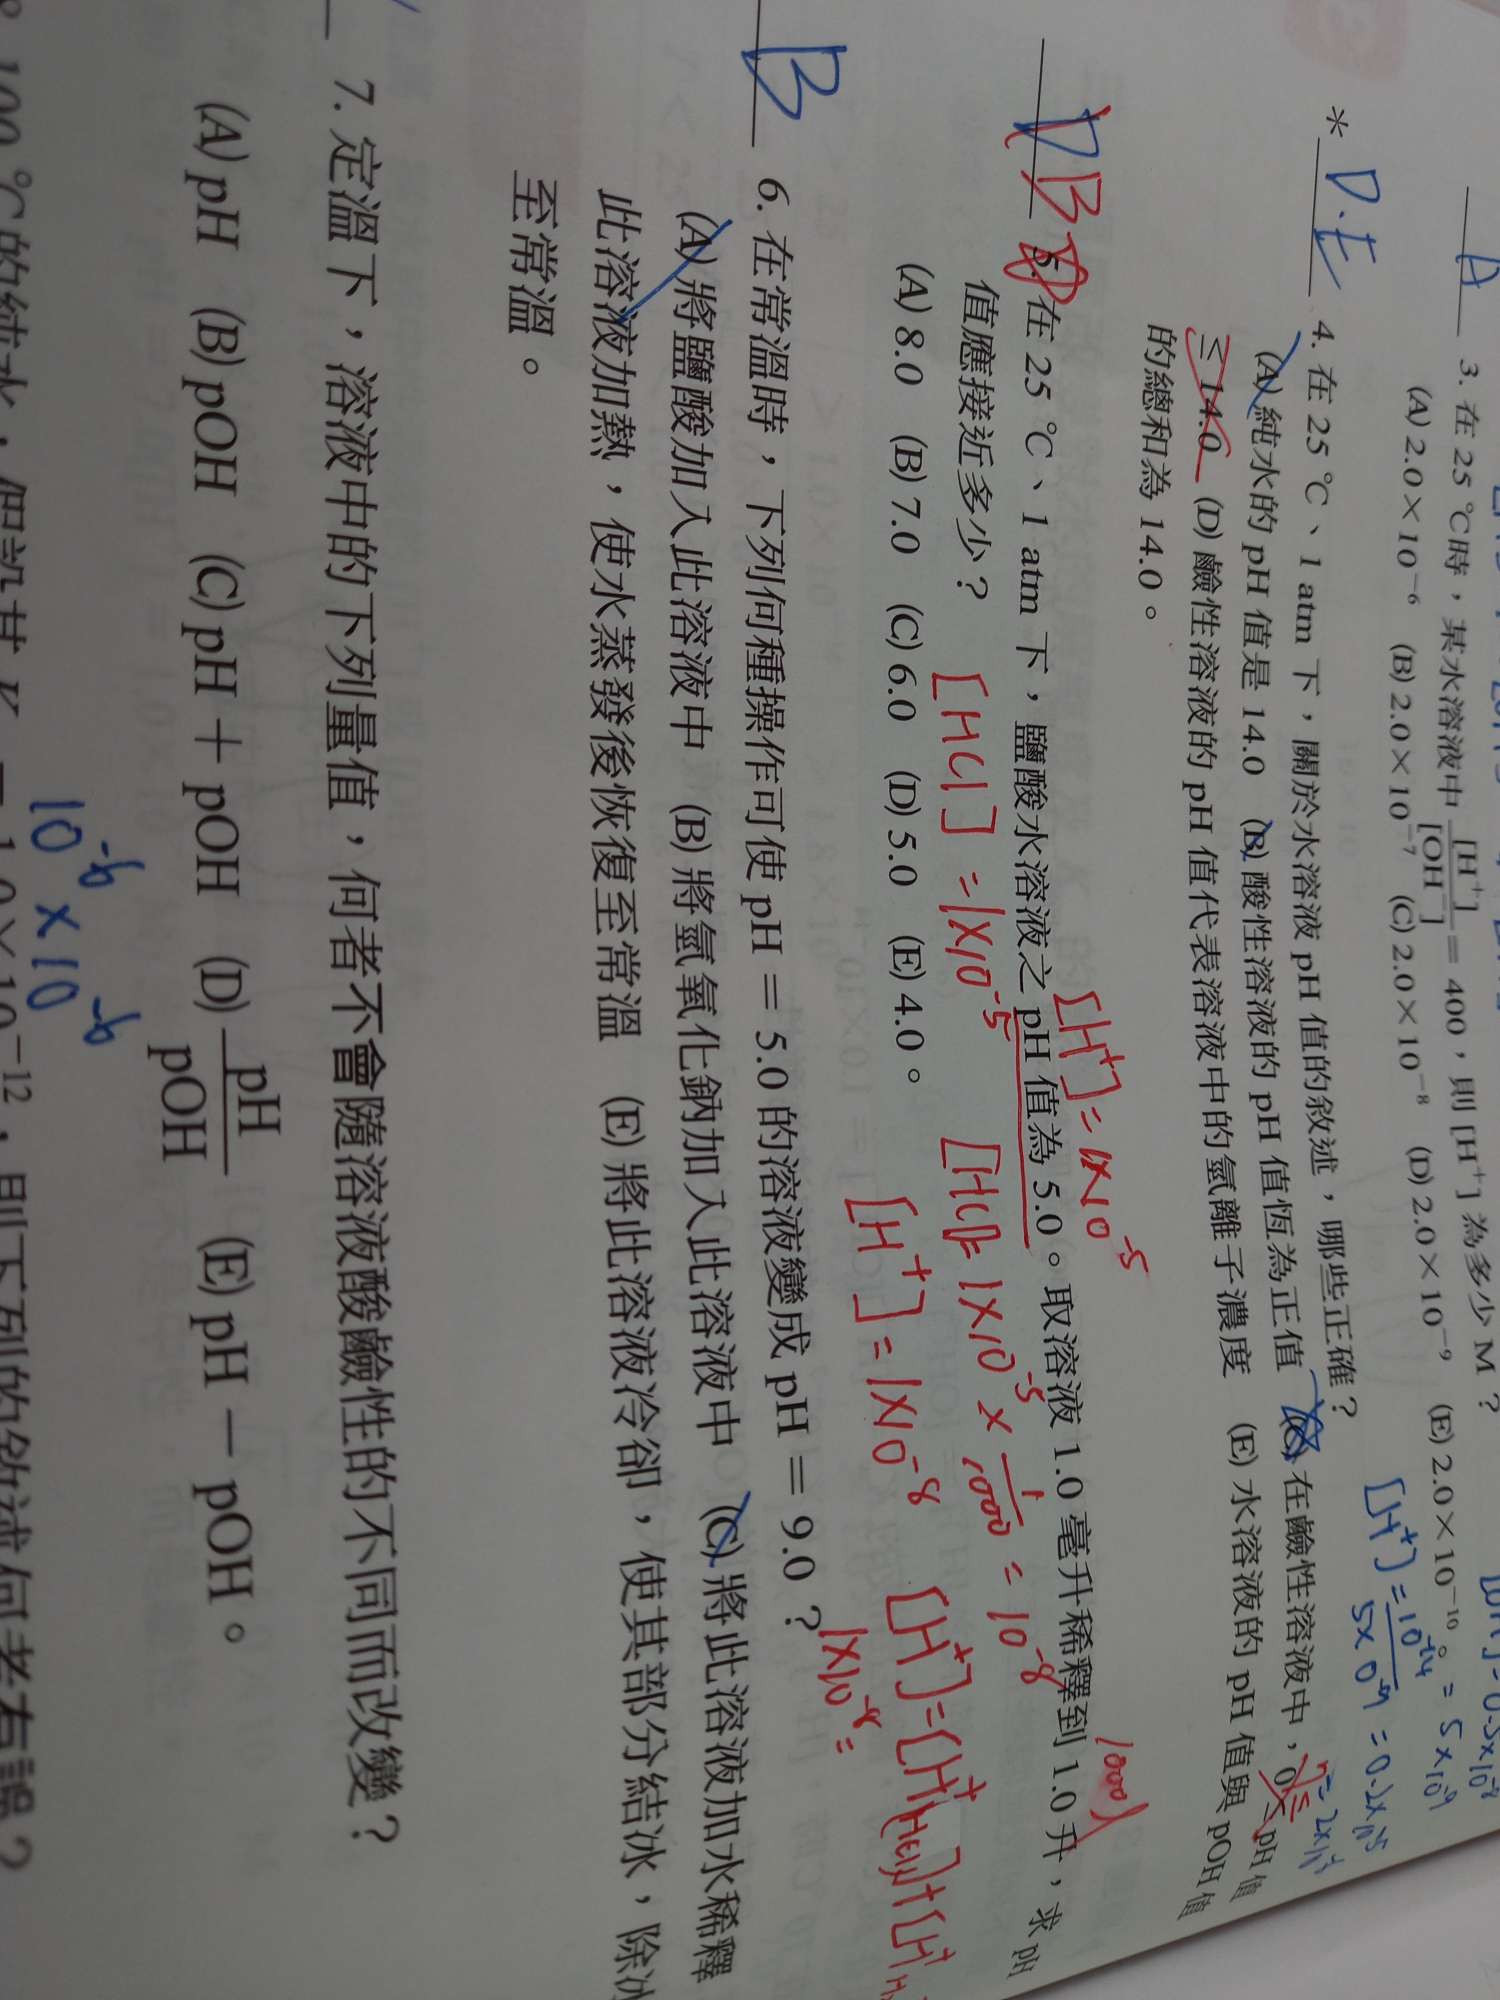 A
3. 在 25 °C時，某水溶液中 [H⁺]/[OH⁻] = 400，則 [H⁺] 為多少 M？
(A) 2.0×10⁻⁶ (B) 2.0×10⁻⁷ (C) 2.0×10⁻⁸ (D) 2.0×10⁻⁹ (E) 2.0×10⁻¹⁰。
* D.E
4. 在 25 °C、1 atm 下，關於水溶液 pH 值的敘述，哪些正確？
(A) 純水的 pH 值是 14.0 (B) 酸性溶液的 pH 值恆為正值 (C) 在鹼性溶液中，0 ≤ pH 值
≤ 14.0 (D) 鹼性溶液的 pH 值代表溶液中的氫離子濃度 (E) 水溶液的 pH 值與 pOH 值
的總和為 14.0。
[H⁺] = 1×10⁻⁵
1000
B
5. 在 25 °C、1 atm 下，鹽酸水溶液之 pH 值為 5.0。取溶液 1.0 毫升稀釋到 1.0 升，求 pH
值應接近多少？
[HCl] = 1×10⁻⁵
[HCl] = 1×10⁻⁵ × 1/1000 = 10⁻⁸
(A) 8.0 (B) 7.0 (C) 6.0 (D) 5.0 (E) 4.0。
[H⁺] = 1×10⁻⁸
1×10⁻⁸ =
B
6. 在常溫時，下列何種操作可使 pH = 5.0 的溶液變成 pH = 9.0？
(A) 將鹽酸加入此溶液中 (B) 將氫氧化鈉加入此溶液中 (C) 將此溶液加水稀釋
此溶液加熱，使水蒸發後恢復至常溫 (E) 將此溶液冷卻，使其部分結冰，除冰
至常溫。
7. 定溫下，溶液中的下列量值，何者不會隨溶液酸鹼性的不同而改變？
(A) pH (B) pOH (C) pH + pOH (D) pH/pOH (E) pH − pOH。
10⁻⁶ × 10⁻⁶
100 °C的純水，假設其 K = 1.0×10⁻¹²，則下列的敘述何者有誤？